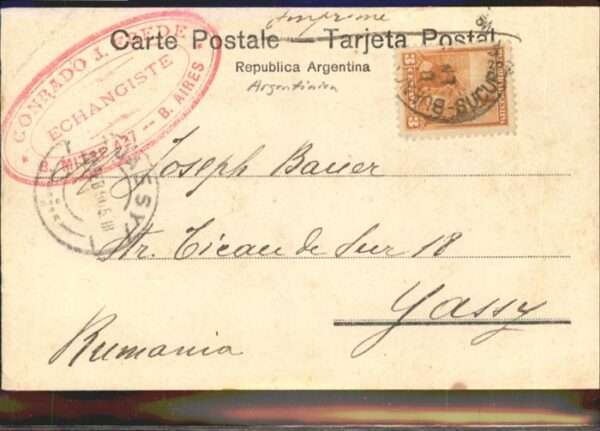 Imprimé
Carte Postale — Tarjeta Postal
Republica Argentina
Argentinien
CONRADO J.
ECHANGISTE
B. MITRE 427 — B. AIRES
SUCURSAL
3
3
JASSY
Joseph Bauer
Str. Cicau de Sur 18
Yassy
Rumania